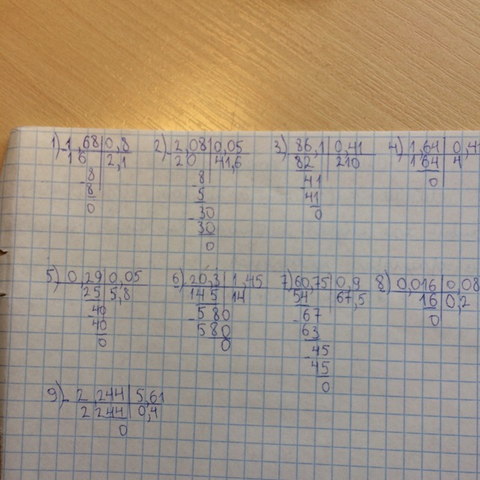 1) 1,68 | 0,8 2) 2,08 | 0,05 3) 86,1 | 0,41 4) 1,64 | 0,41
16 | 2,1 20 | 41,6 82 | 210 164 | 4
8 8 41 0
8 5 41
0 30 0
30
0
5) 0,29 | 0,05 6) 20,3 | 1,45 7) 60,75 | 0,9 8) 0,016 | 0,08
25 | 5,8 145 | 14 54 | 67,5 16 | 0,2
40 580 67 0
40 580 63
0 0 45
45
0
9) 2,244 | 5,61
2 244 | 0,4
0